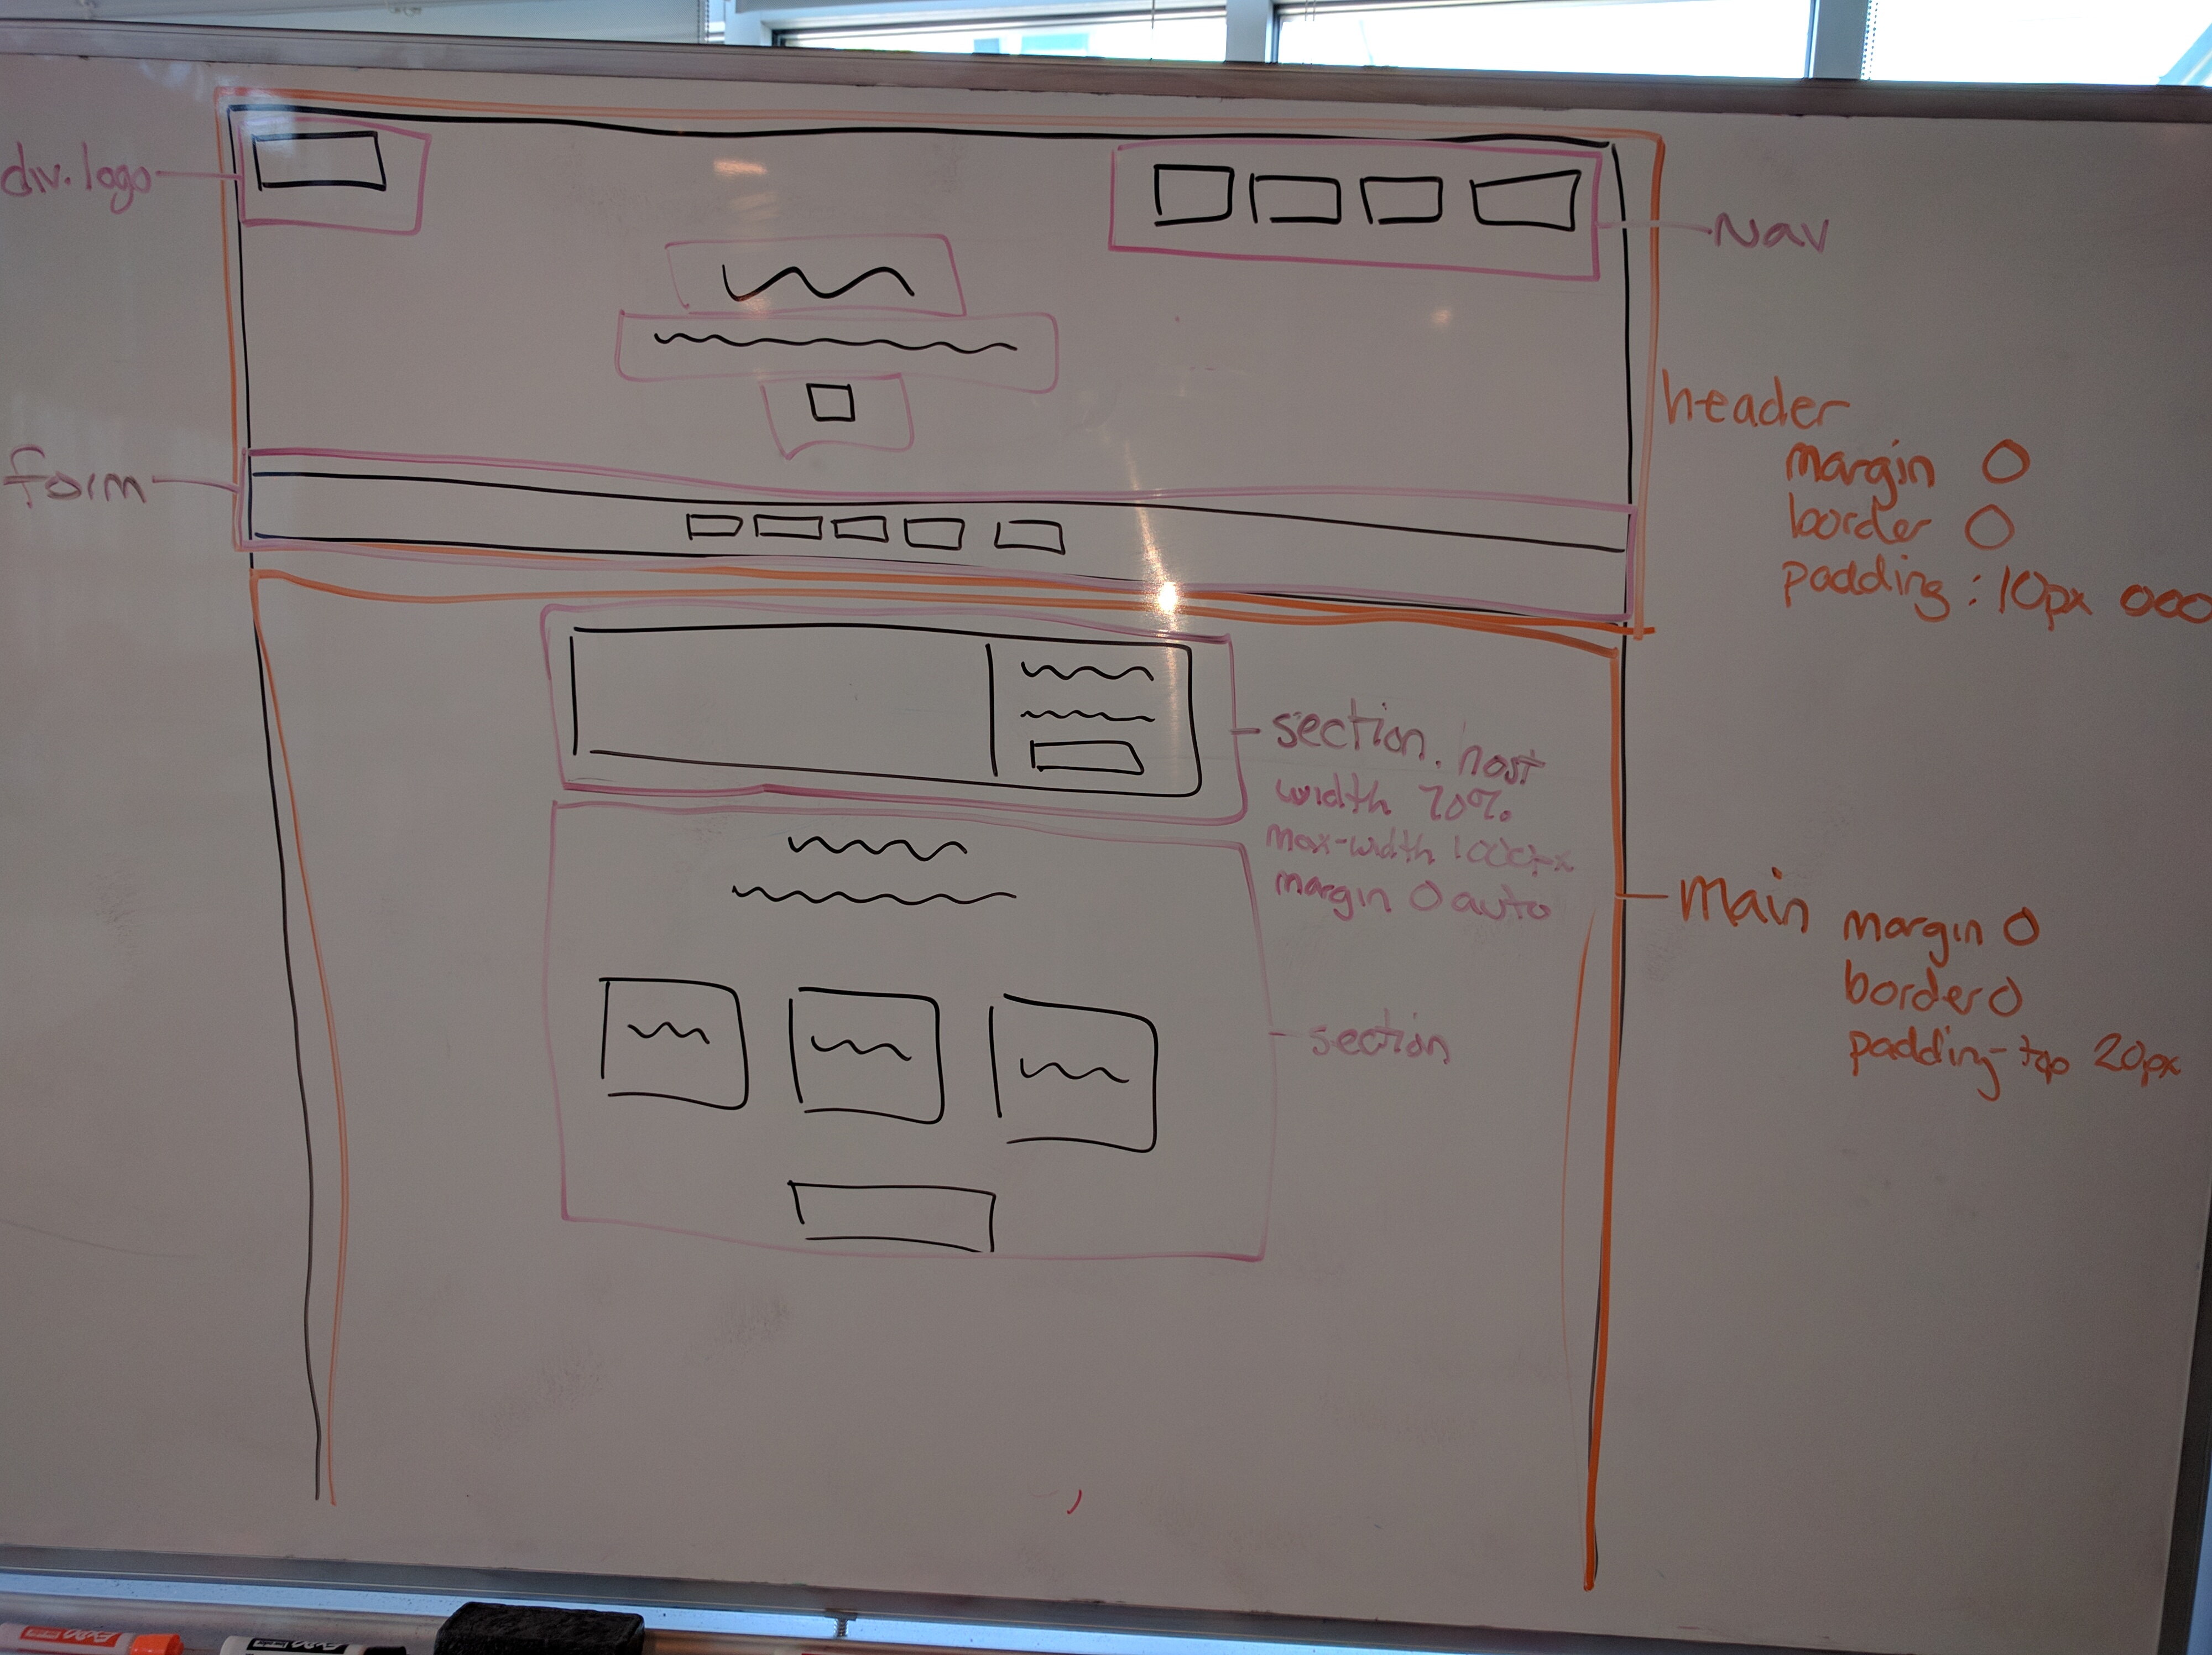 div.logo
Nav
header
margin 0
border 0
padding: 10px 000
form
section. host
width 70%
max-width 1000px
margin 0 auto
main
margin 0
border 0
padding-top 20px
section
EXPO
EXPO